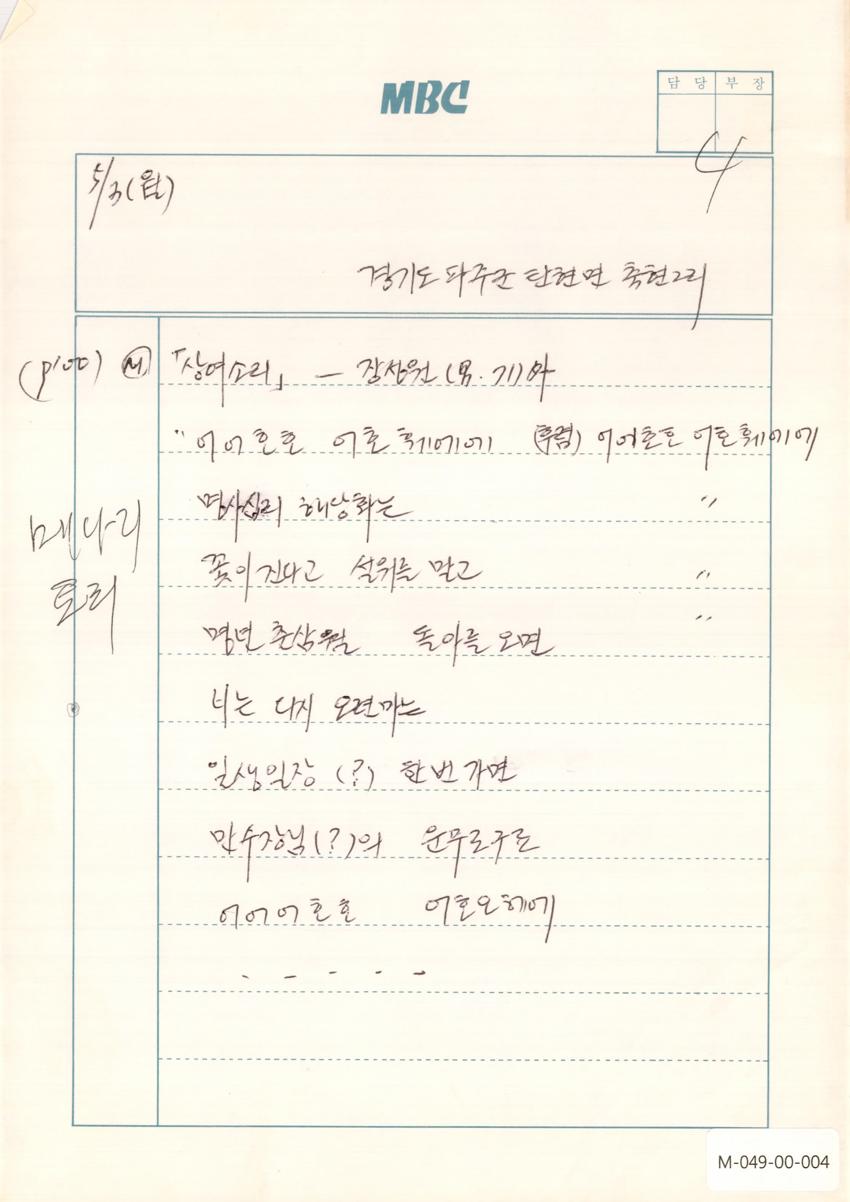 MBC
담당 부장
4
5/3(월)
경기도 파주군 탄현면 축현2리
(p100) M 「상여소리」 — 장상원 (男. 71)外
" 어어호호 어호훼에에 (후렴) 어어호호 어호훼에에
명사십리 해당화는 "
꽃이 진다고 설위를 말고 "
명년 춘삼월 돌아를 오면 "
너는 다시 오련마는
일생일장 (?) 한번 가면
만수장님(?)의 운무로구료
어어어호호 어호오헤에
- - - - -
메나리
토리
M-049-00-004